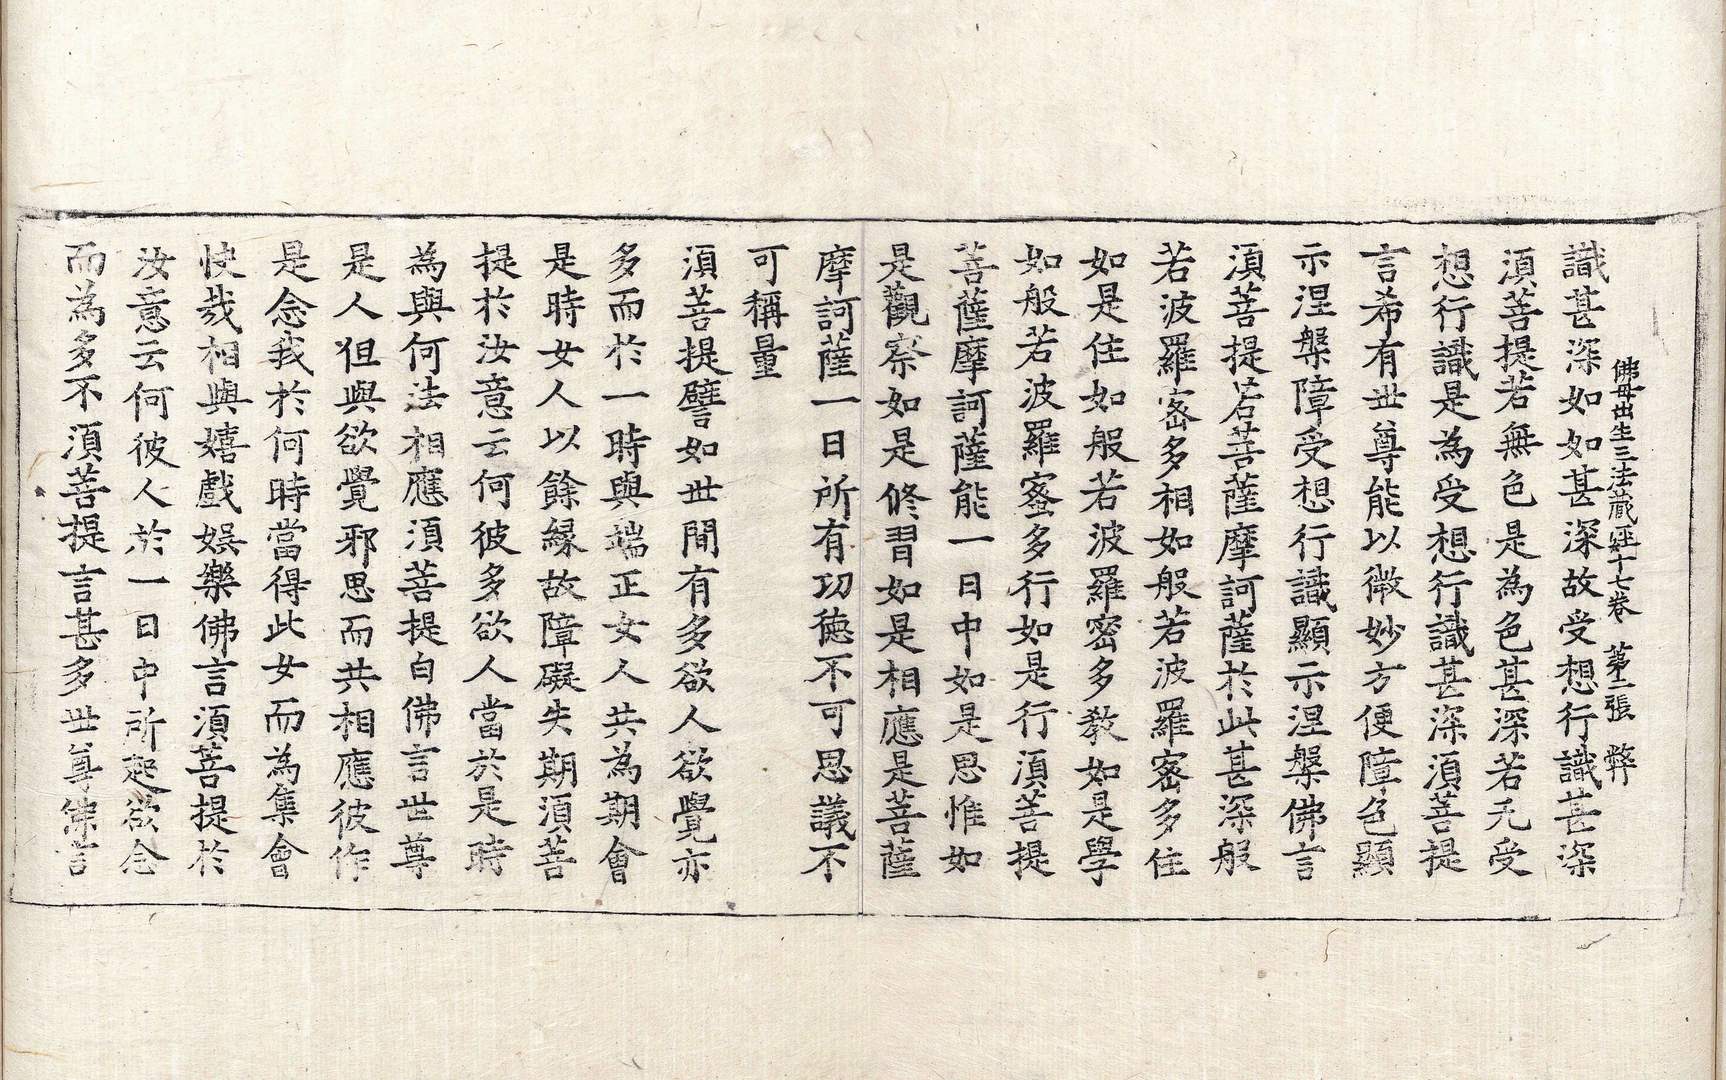 佛母出生三法藏經十七卷 第二張 弊
識甚深如如甚深故受想行識甚深
須菩提若無色是為色甚深若无受
想行識是為受想行識甚深須菩提
言希有世尊能以微妙方便障色顯
示涅槃障受想行識顯示涅槃佛言
須菩提若菩薩摩訶薩於此甚深般
若波羅蜜多相如般若波羅蜜多住
如是住如般若波羅蜜多教如是學
如般若波羅蜜多行如是行須菩提
菩薩摩訶薩能一日中如是思惟如
是觀察如是修習如是相應是菩薩
摩訶薩一日所有功德不可思議不
可稱量
須菩提譬如世間有多欲人欲覺亦
多而於一時與端正女人共為期會
是時女人以餘緣故障礙失期須菩
提於汝意云何彼多欲人當於是時
為與何法相應須菩提白佛言世尊
是人但與欲覺邪思而共相應彼作
是念我於何時當得此女而為集會
快哉相與嬉戲娛樂佛言須菩提於
汝意云何彼人於一日中所起欲念
而為多不須菩提言甚多世尊佛言